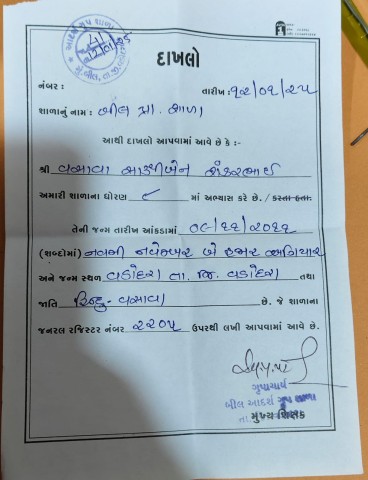 આદર્શ ગૃપ શાળા
41
12/01/25
મુ.બીલ, તા.જી.વડોદરા
દાખલો
નંબર :
તારીખ : ૧૨/૦૧/૨૫
શાળાનું નામ : બીલ પ્રા. શાળા
આથી દાખલો આપવામાં આવે છે કે :-
શ્રી વસાવા સાક્ષીબેન શંકરભાઈ
અમારી શાળાના ધોરણ ૮ માં અભ્યાસ કરે છે. / કરતા હતા.
તેની જન્મ તારીખ આંકડામાં ૦૯/૧૧/૨૦૧૧
(શબ્દોમાં) નવમી નવેમ્બર બે હજાર અગિયાર
અને જન્મ સ્થળ વડોદરા તા. જિ. વડોદરા તથા
જાતિ હિન્દુ - વસાવા છે. જે શાળાના
જનરલ રજિસ્ટર નંબર ૨૨૦૫ ઉપરથી લખી આપવામાં આવે છે.
ગૃપાચાર્ય
બીલ આદર્શ ગૃપ શાળા
તા. મુખ્ય શિક્ષક